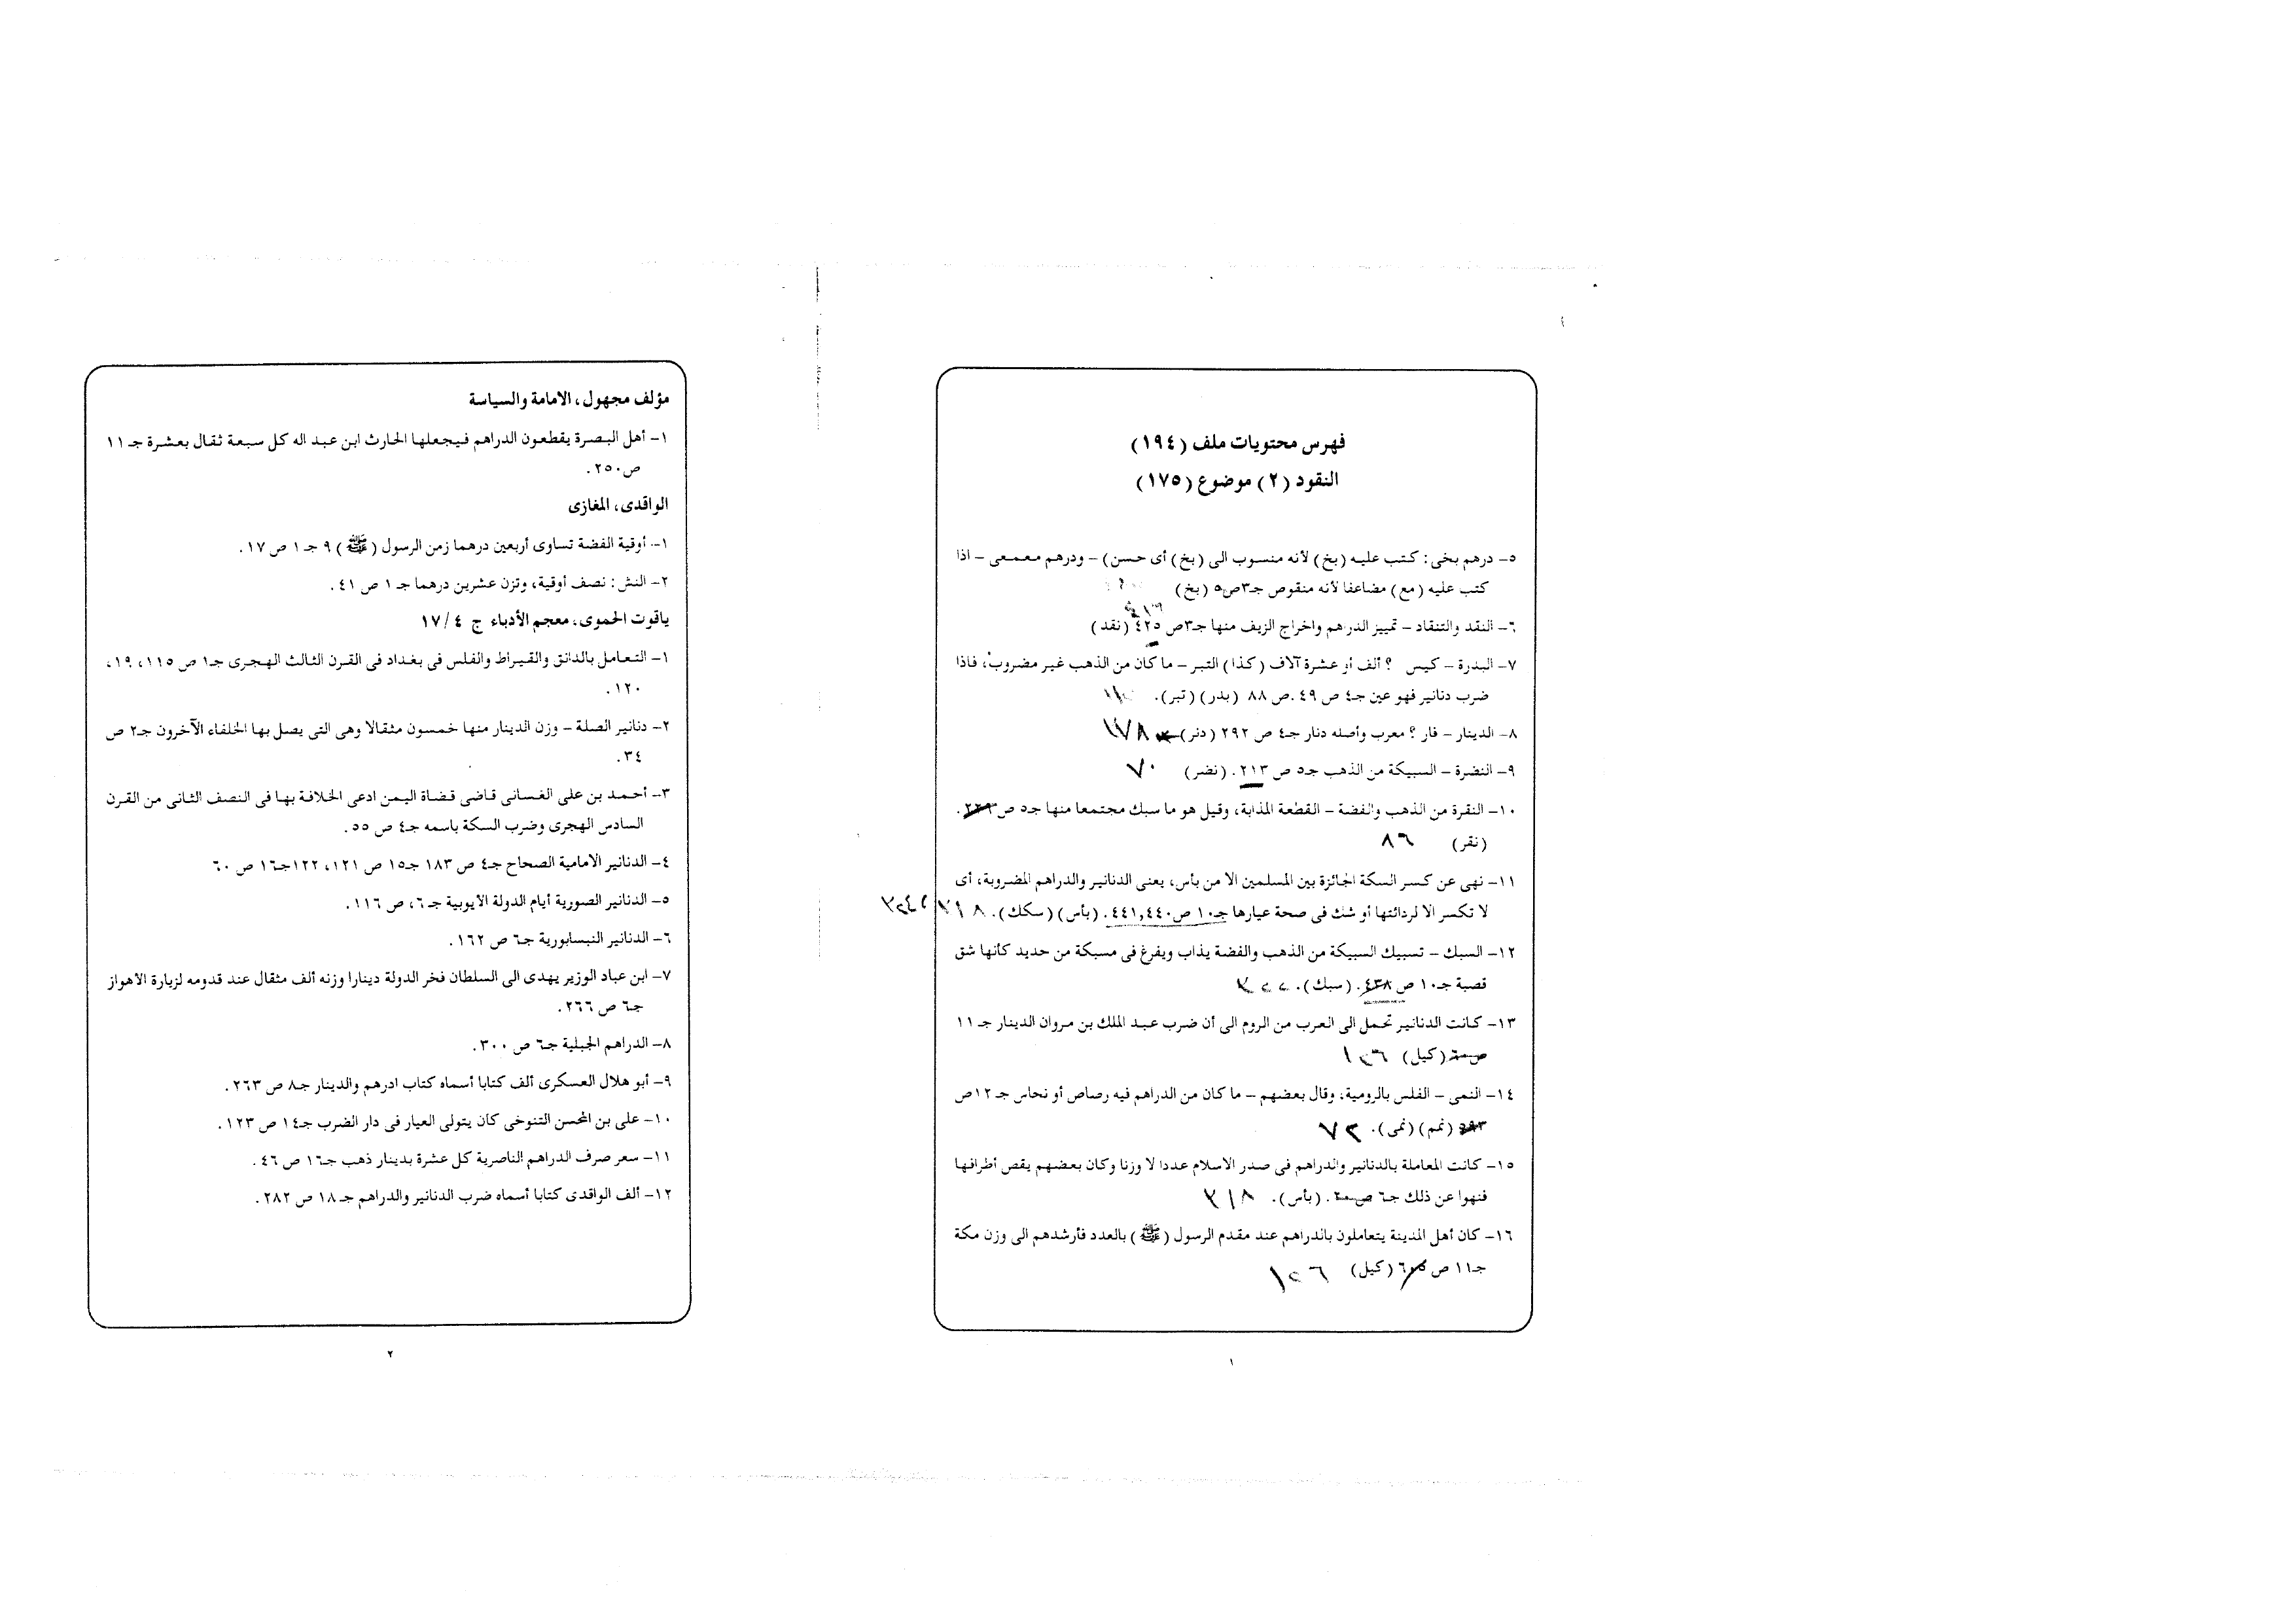 فهرس محتويات ملف (١٩٤)
النقود (٢) موضوع (١٧٥)
٥- درهم بخى: كتب عليه (بخ) لأنه منسوب الى (بخ) أى حسن) - ودرهم معمعى - اذا
كتب عليه (مع) مضاعفا لأنه منقوص جـ٣ص٥ (بخ)
٦- النقد والتنقاد - تمييز الدرهم واخراج الزيف منها جـ٣ص ٤٢٥ (نقد)
٧- البدرة - كيس ؟ ألف أو عشرة آلاف (كذا) التبر - ما كان من الذهب غير مضروب، فاذا
ضرب دنانير فهو عين جـ٤ ص ٤٩. ص ٨٨ (بدر) (تبر).
٨- الدينار - فار ؟ معرب وأصله دنار جـ٤ ص ٢٩٢ (دنر) ١٧٨
٩- النضرة - السبيكة من الذهب جـ٥ ص ٢١٣. (نضر) ٧٠
١٠- النقرة من الذهب والفضة - القطعة المذابة، وقيل هو ما سبك مجتمعا منها جـ٥ ص
(نقر) ٨٦
١١- نهى عن كسر السكة الجائزة بين المسلمين الا من بأس، يعنى الدنانير والدراهم المضروبة، أى
لا تكسر الا لردائتها أو شك فى صحة عيارها جـ١٠ ص٤٤١,٤٤٠. (بأس) (سكك). ٣١٨
١٢- السبك - تسبيك السبيكة من الذهب والفضة يذاب ويفرغ فى مسبكة من حديد كأنها شق
قصبة جـ١٠ ص ٤٣٨. (سبك).
١٣- كانت الدنانير تحمل الى العرب من الروم الى أن ضرب عبد الملك بن مروان الدينار جـ١١
(كيل)
١٤- النمى - الفلس بالرومية، وقال بعضهم - ما كان من الدراهم فيه رصاص أو نحاس جـ١٢ص
(نمم) (نمى). ٧٣
١٥- كانت المعاملة بالدنانير والدراهم فى صدر الاسلام عددا لا وزنا وكان بعضهم يقص أطرافها
فنهوا عن ذلك جـ٦ ص (بأس). ٣١٨
١٦- كان أهل المدينة يتعاملون بالدراهم عند مقدم الرسول (ﷺ) بالعدد فأرشدهم الى وزن مكة
جـ١١ ص (كيل)
١
مؤلف مجهول، الامامة والسياسة
١- أهل البصرة يقطعون الدراهم فيجعلها الحارث ابن عبد اله كل سبعة ثقال بعشرة جـ١١
ص٢٥٠.
الواقدى، المغازى
١- أوقية الفضة تساوى أربعين درهما زمن الرسول (ﷺ) ٩ جـ١ ص ١٧.
٢- النش: نصف أوقية، وتزن عشرين درهما جـ١ ص ٤١.
ياقوت الحموى، معجم الأدباء ج ١٧/٤
١- التعامل بالدانق والقيراط والفلس فى بغداد فى القرن الثالث الهجرى جـ١ ص ١١٥، ١٩،
١٢٠.
٢- دنانير الصلة - وزن الدينار منها خمسون مثقالا وهى التى يصل بها الخلفاء الآخرون جـ٢ ص
٣٤.
٣- أحمد بن على الغسانى قاضى قضاة اليمن ادعى الخلافة بها فى النصف الثانى من القرن
السادس الهجرى وضرب السكة باسمه جـ٤ ص ٥٥.
٤- الدنانير الامامية الصحاح جـ٤ ص ١٨٣ جـ١٥ ص ١٢١، ١٢٢جـ١٦ ص ٦٠
٥- الدنانير الصورية أيام الدولة الأيوبية جـ٦، ص ١١٦.
٦- الدنانير النيسابورية جـ٦ ص ١٦٢.
٧- ابن عباد الوزير يهدى الى السلطان فخر الدولة دينارا وزنه ألف مثقال عند قدومه لزيارة الأهواز
جـ٦ ص ٢٦٦.
٨- الدراهم الجبلية جـ٦ ص ٣٠٠.
٩- أبو هلال العسكرى ألف كتابا أسماه كتاب ادرهم والدينار جـ٨ ص ٢٦٣.
١٠- على بن المحسن التنوخى كان يتولى العيار فى دار الضرب جـ١٤ ص ١٢٣.
١١- سعر صرف الدراهم الناصرية كل عشرة بدينار ذهب جـ١٦ ص ٤٦.
١٢- ألف الواقدى كتابا أسماه ضرب الدنانير والدراهم جـ١٨ ص ٢٨٢.
٢